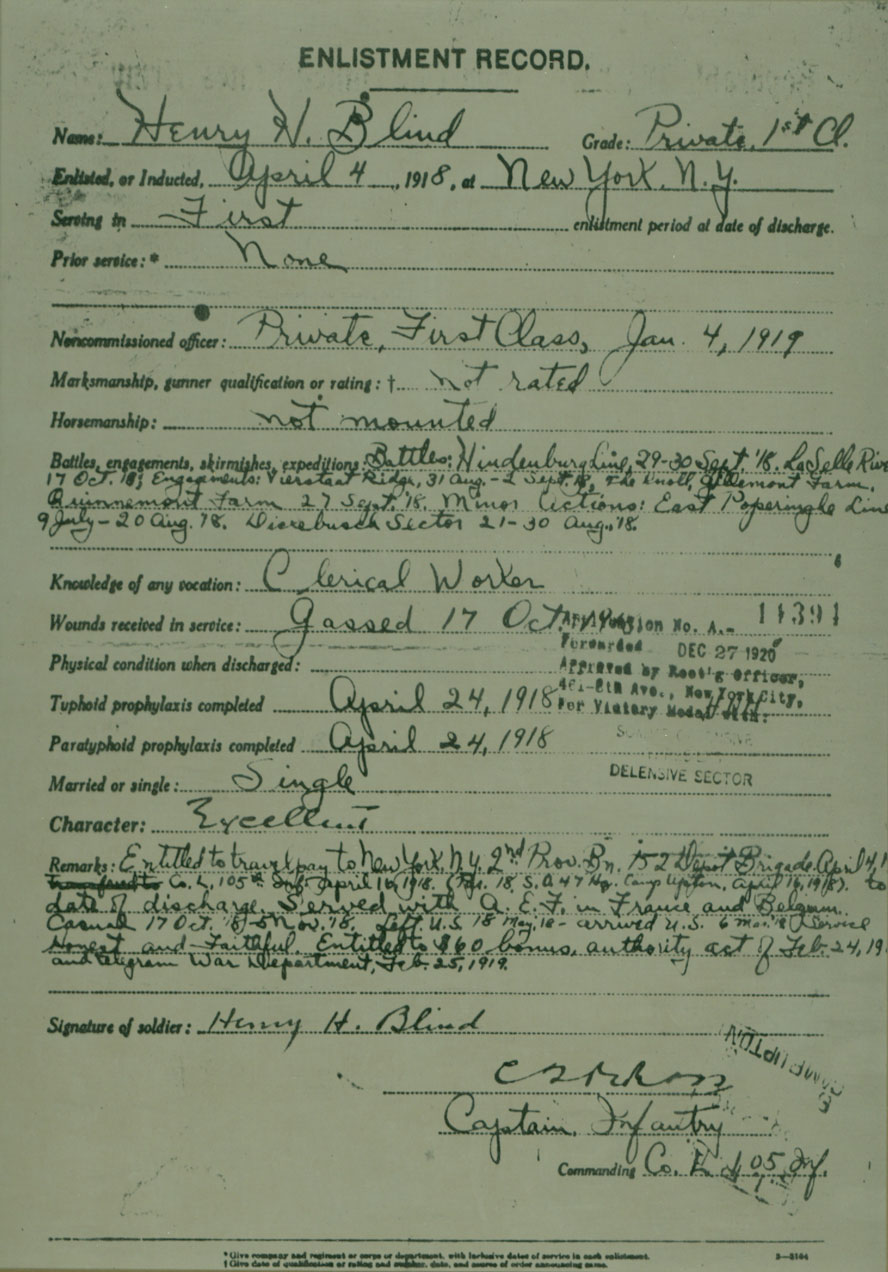 ENLISTMENT RECORD.
Name: Henry H. Blind Grade: Private, 1st Cl.
Enlisted, or Inducted, April 4, 1918, at New York, N.Y.
Serving in First enlistment period at date of discharge.
Prior service: * None
Noncommissioned officer: Private, First Class, Jan. 4, 1919
Marksmanship, gunner qualification or rating: † not rated
Horsemanship: not mounted
Battles, engagements, skirmishes, expeditions: Battles: Hindenburg Line, 29-30 Sept. '18. La Selle Rive
17 Oct. '18; Engagements: Vierstaat Ridge, 31 Aug. - 2 Sept. '18, The Knoll, Gillemont Farm,
Quinnemont Farm 27 Sept. '18. Minor Actions: East Poperinghe Line
9 July - 20 Aug. '18. Dickebusch Sector 21-30 Aug., '18.
Knowledge of any vocation: Clerical Worker
Wounds received in service: gassed 17 Oct.
No. A.-
Forwarded DEC 27 1920
Approved by Rect'g Officer,
461-8th Ave., New York City,
For Victory Medal with:
Physical condition when discharged:
Typhoid prophylaxis completed April 24, 1918
Paratyphoid prophylaxis completed April 24, 1918
DEFENSIVE SECTOR
Married or single: Single
Character: Excellent
Remarks: Entitled to travel pay to New York, N.Y. 2nd Prov. Bn. 152 Depot Brigade April 4, 1
Co. L, 105th Inf. April 16, 1918. 18, S.O. 47 Hq. Camp Upton, April 16, 1918). to
date of discharge. Served with A.E.F. in France and Belgium.
Casual 17 Oct. '18-5 Nov. '18. Left U.S. 18 May, 18 - arrived U.S. 6 Service
Honest and Faithful. Entitled to $60 bonus, authority act of Feb. 24, 19
and telegram War Department, Feb. 25, 1919.
Signature of soldier: Henry H. Blind
CAMP UPTON
Captain, Infantry
Commanding Co. L 105 Inf.
* Give company and regiment or corps or department, with inclusive dates of service in each enlistment.
† Give date of qualification or rating and number, date, and source of order announcing same.